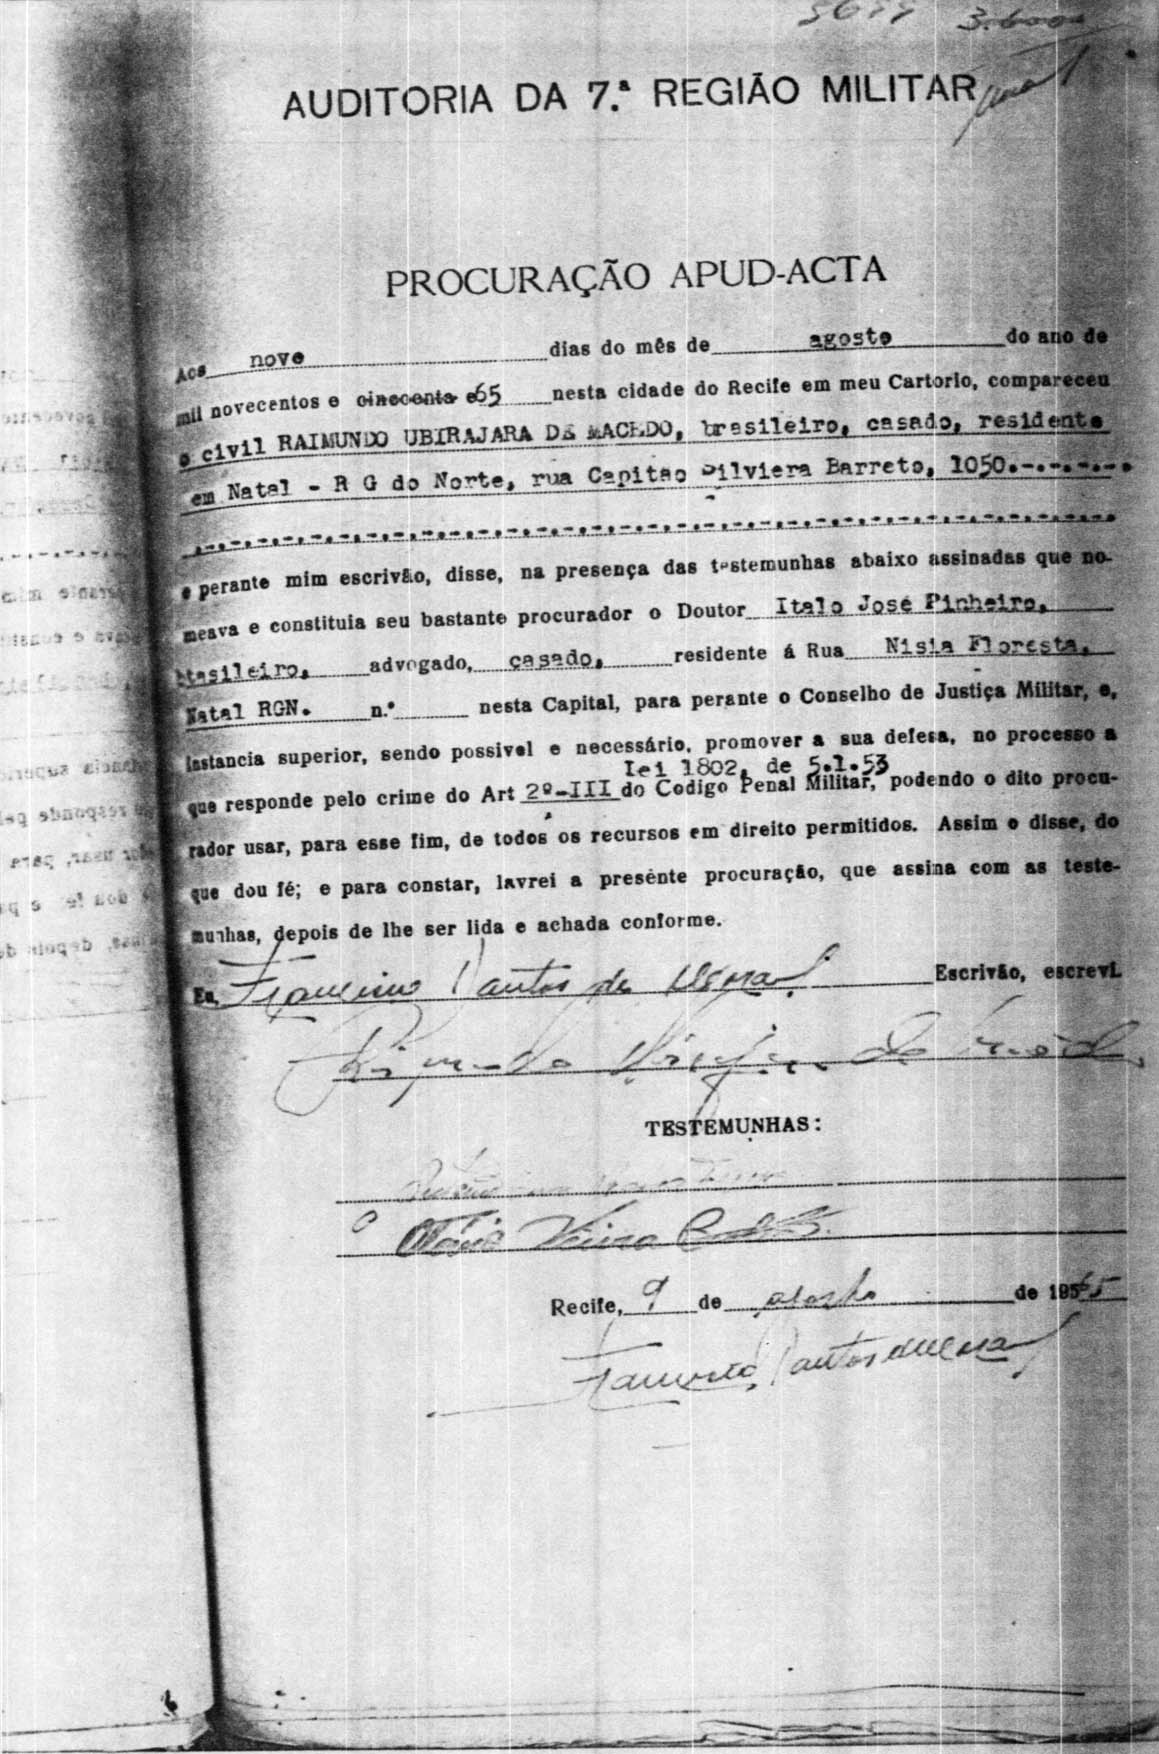 AUDITORIA DA 7.ª REGIÃO MILITAR
PROCURAÇÃO APUD-ACTA
Aos nove dias do mês de agosto do ano de
mil novecentos e cincoenta e 65 nesta cidade do Recife em meu Cartorio, compareceu
o civil RAIMUNDO UBIRAJARA DE MACEDO, brasileiro, casado, residente
em Natal - R G do Norte, rua Capitao Silviera Barreto, 1050.-.-.-.-.
e perante mim escrivão, disse, na presença das testemunhas abaixo assinadas que no-
meava e constituia seu bastante procurador o Doutor Italo José Pinheiro,
brasileiro, advogado, casado, residente á Rua Nisia Floresta,
Natal RGN. n.º nesta Capital, para perante o Conselho de Justiça Militar, e,
instancia superior, sendo possivel e necessário, promover a sua defesa, no processo a
lei 1802, de 5.1.53
que responde pelo crime do Art 2º-III do Codigo Penal Militar, podendo o dito procu-
rador usar, para esse fim, de todos os recursos em direito permitidos. Assim o disse, do
que dou fé; e para constar, lavrei a presente procuração, que assina com as teste-
munhas, depois de lhe ser lida e achada conforme.
Eu, Escrivão, escrevi.
TESTEMUNHAS:
Recife, 9 de agosto de 1965